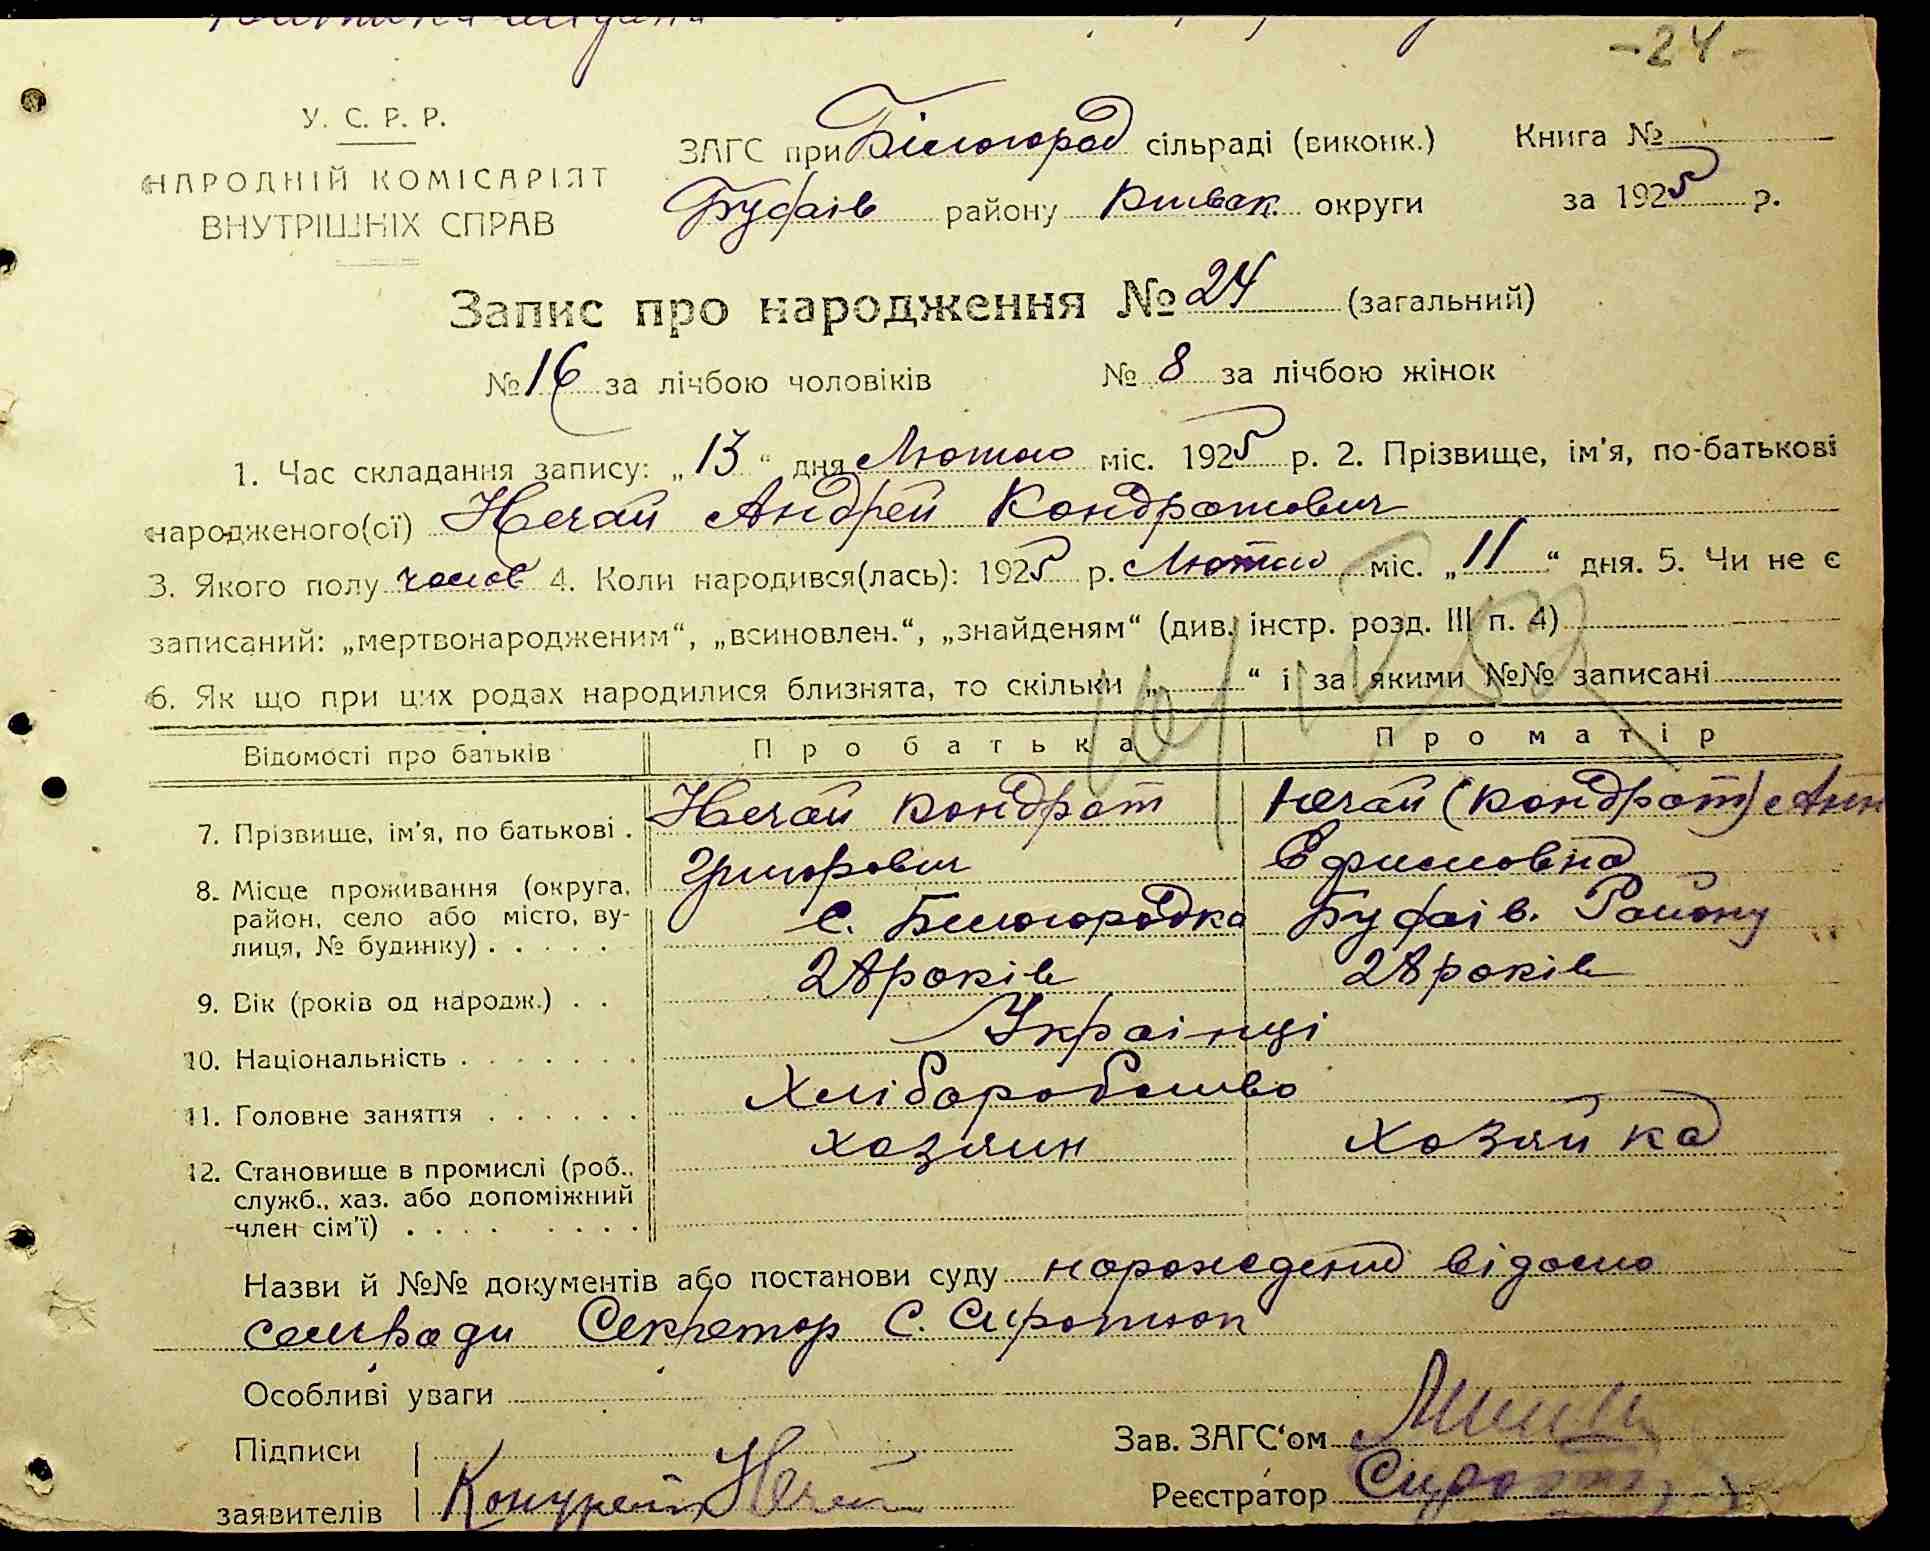 -24-
У. С. Р. Р.
НАРОДНІЙ КОМІСАРІЯТ
ВНУТРІШНІХ СПРАВ
ЗАГС при Білогород сільраді (виконк.) Книга №
Буфаїв району Київск. округи за 1925 р.
Запис про народження № 24 (загальний)
№ 16 за лічбою чоловіків № 8 за лічбою жінок
1. Час складання запису: „13“ дня Лютого міс. 1925 р. 2. Прізвище, ім'я, по-батькові
народженого(сї) Нечай Андрей Кондратович
3. Якого полу чолов 4. Коли народився(лась): 1925 р. Лютого міс. „11“ дня. 5. Чи не є
записаний: „мертвонародженим“, „всиновлен.“, „знайденям“ (див. інстр. розд. III п. 4)
6. Як що при цих родах народилися близнята, то скільки „ “ і за якими №№ записані
Відомості про батьків Про батька Про матір
7. Прізвище, ім'я, по батькові . Нечай Кондрат Нечай (Кондрат) Анн
Григорович Ефимовна
8. Місце проживання (округа,
район, село або місто, ву- с. Білогородка Буфаїв. Району
лиця, № будинку) . . . . .
9. Вік (років од народж.) . . 28 років 28 років
10. Національність . . . . . . . Українці
11. Головне заняття . . . . . . Хліборобство
12. Становище в промислі (роб., хозяин хозяйка
служб., хаз. або допоміжний
член сім'ї) . . . . . . . .
Назви й №№ документів або постанови суду нарождения відомо
сельради Секретор С. Сиротюк
Особливі уваги
Підписи Зав. ЗАГС'ом
заявителів Нечай Реєстратор